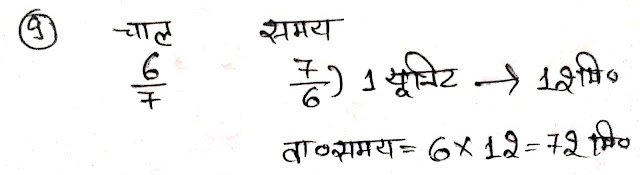 9 चाल समय
6/7 7/6) 1 यूनिट → 12मि०
वा०समय = 6 × 12 = 72 मि०